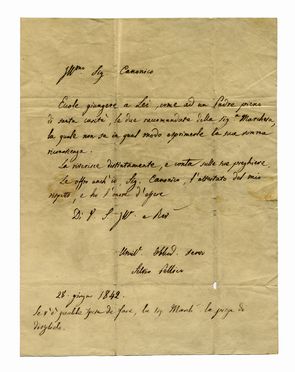 Ill.mo Sig. Canonico
Eccole giungere a Lei, come ad un Padre pieno
di santa carità le due raccomandate della Sig.ra Marchesa,
la quale non sa in qual modo esprimerle la sua somma
riconoscenza.
La riverisce distintamente, e conta sulle sue preghiere.
Le offro anch'io, Sig. Canonico, l'attestato del mio
rispetto, e ho l'onore d'essere
Di V. S. Ill. e Rev.
Umil. Obbed. servo
Silvio Pellico
28 giugno 1842.
Se v'è qualche spesa da fare, la sig. March. la prega di
dirglielo.